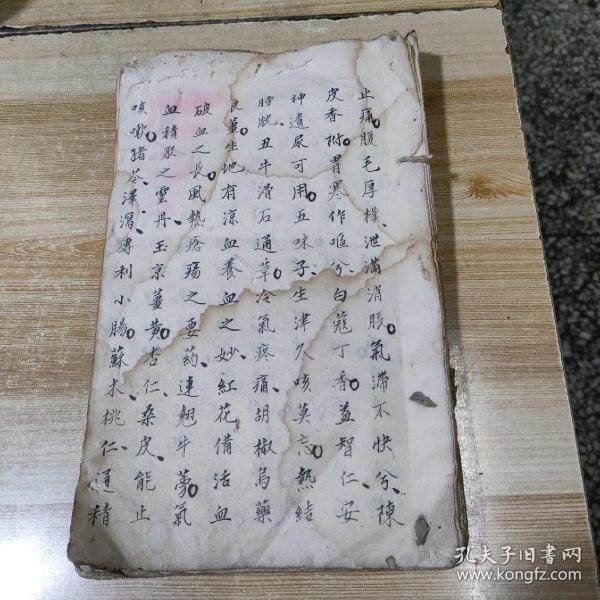 止痛。腹毛厚樸、泄滿消脹。氣滯不快兮、陳
皮香附。胃寒作嘔兮、白蔻丁香。益智仁、安
神遺尿可用。五味子、生津久咳莫忘。熱結
膀胱、丑牛滑石通草。冷氣疼痛、胡椒烏藥
良薑。生地有涼血養血之妙、紅花借活血
破血之長。風熱瘡瘍之要药、連翹牛蒡。氣
血積聚之靈丹、玉京薑黃。杏仁、桑皮能止
咳嗽。豬苓、澤瀉、專利小腸。蘇木、桃仁、通精
孔夫子旧书网
www.kongfz.com